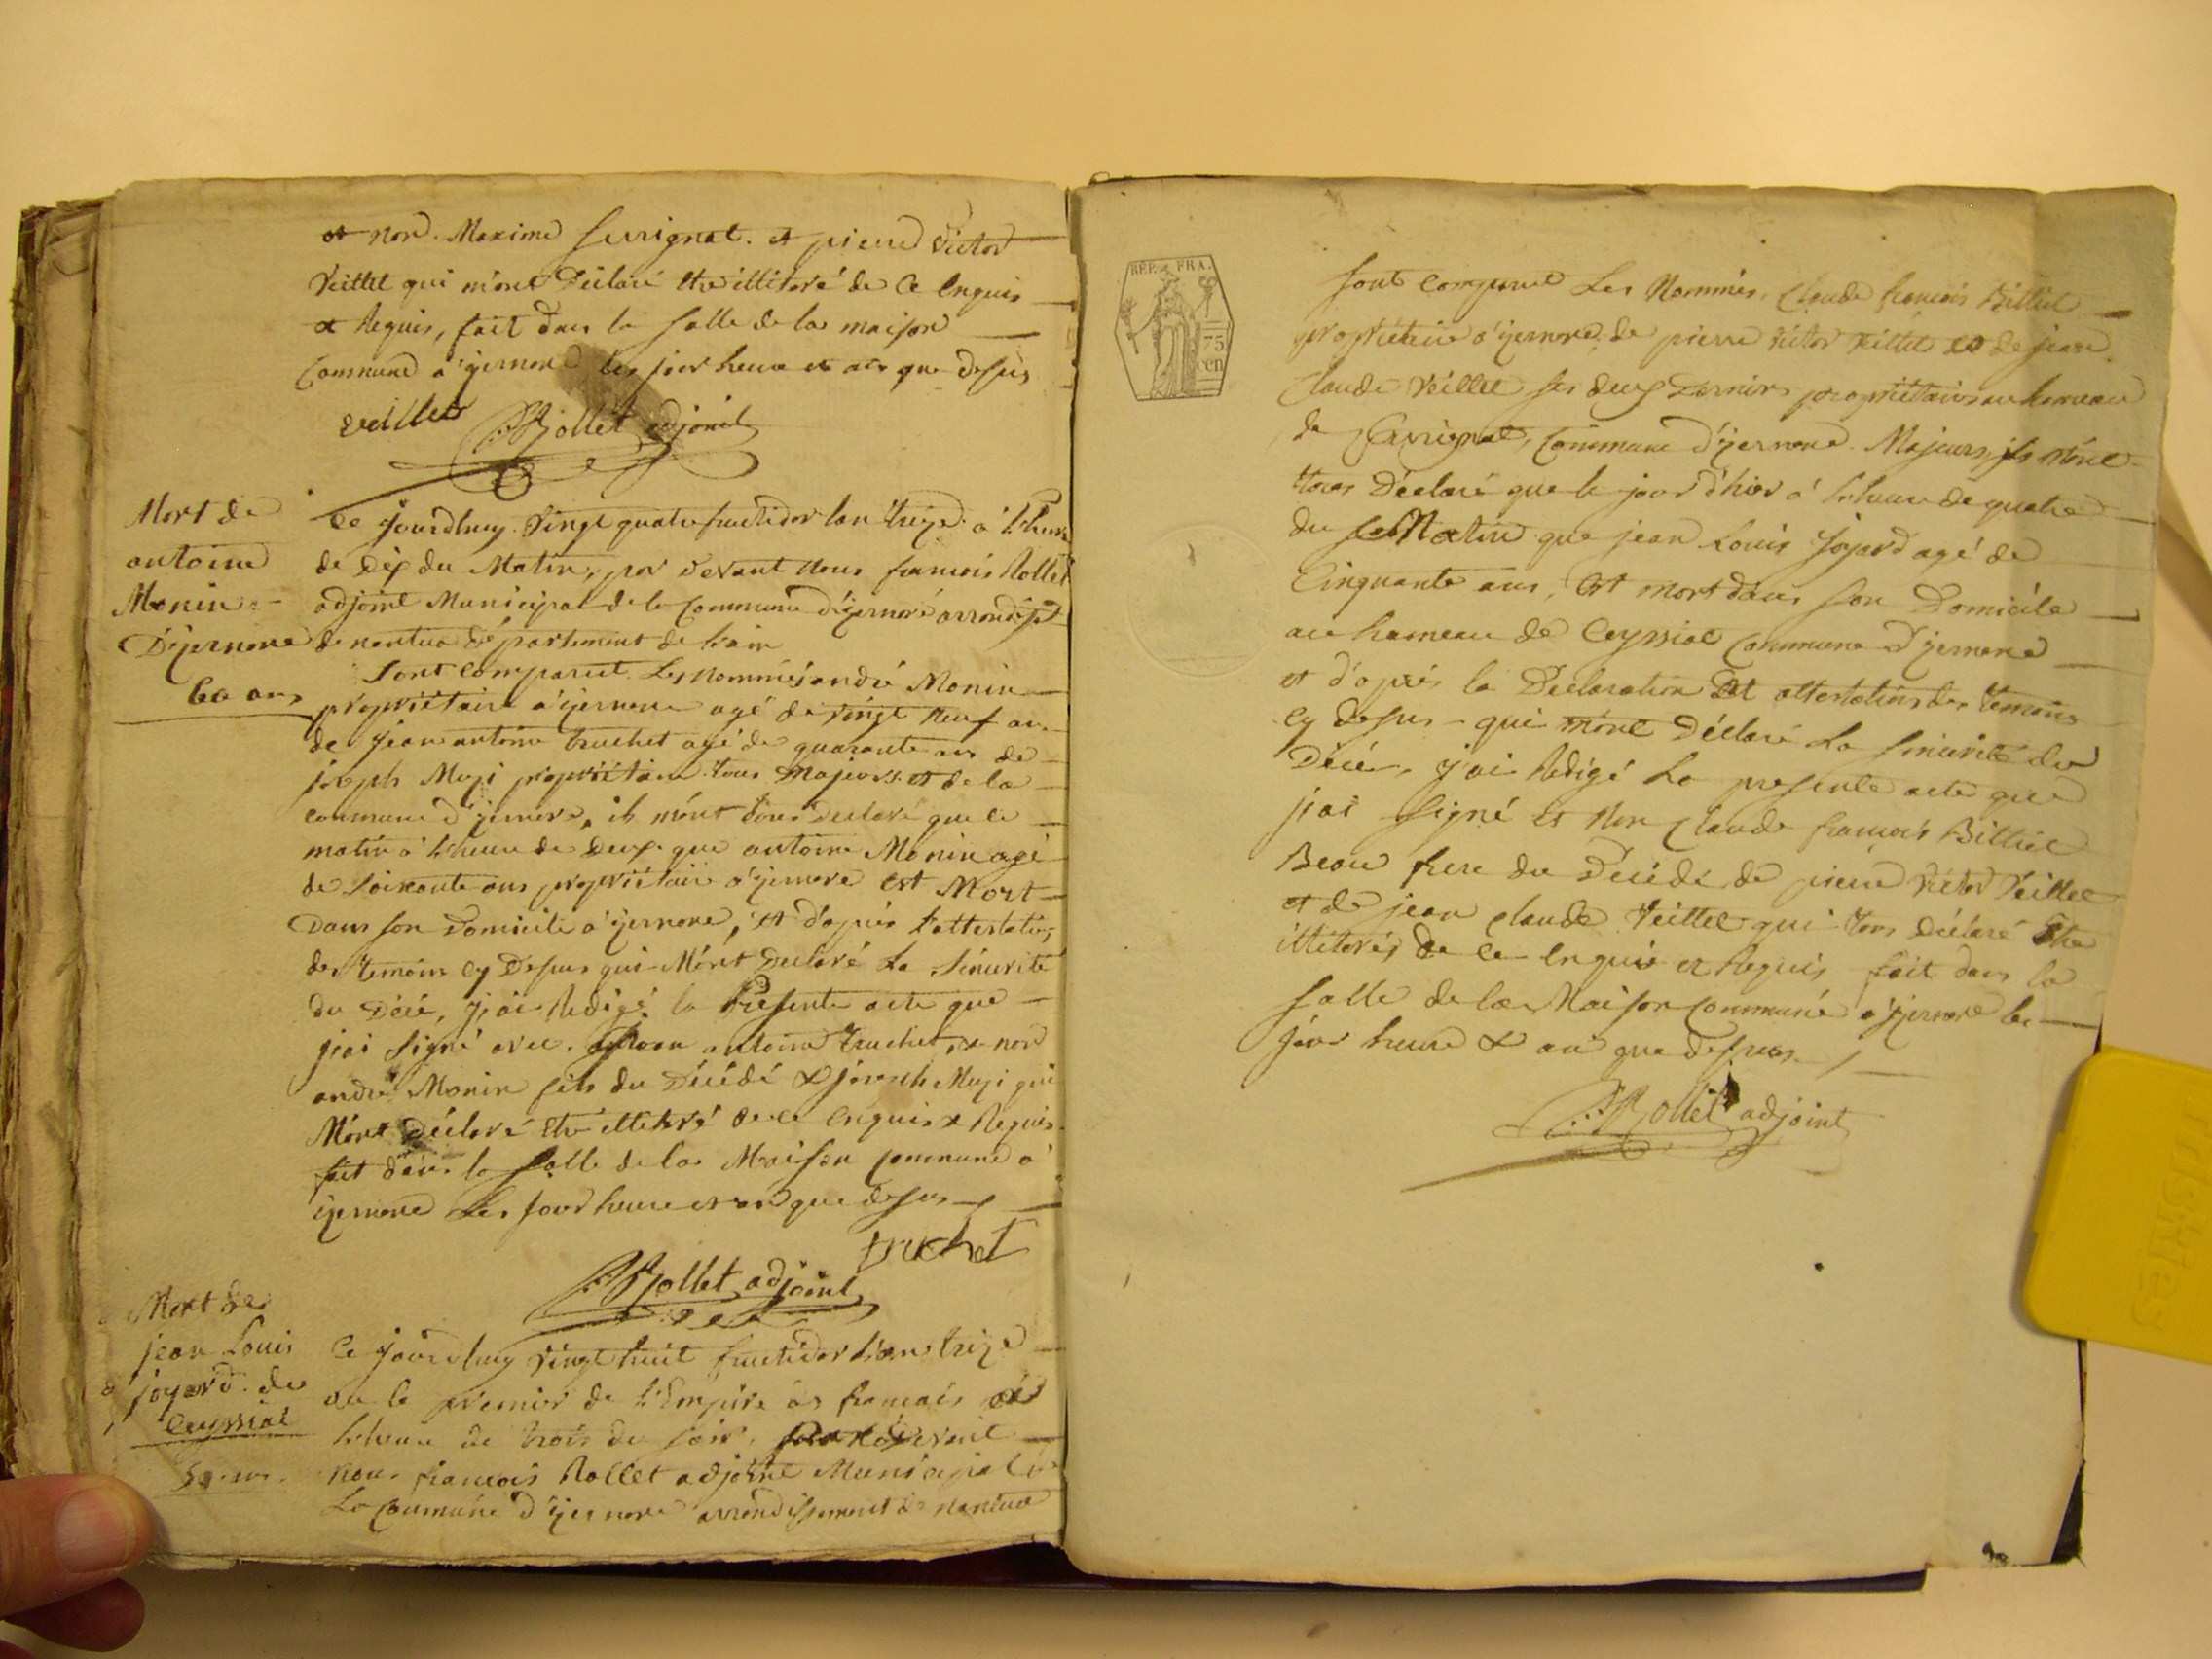 et non Maxime Servignat et pierre victor
Veillet qui m'ont Déclaré être illiteré de Ce Enquis
et Requis, fait dans la salle de la maison
Commune a yzernore les jour heure et an que desus
veillet
F. Rollet adjoint
Mort de
antoine
Monin
D'yzernore
60 ans
Ce jourdhuy vingt quatre fructidor lan treize a l'heure
de Dix du Matin, par devant nous francois Rollet
adjoint Municipal de la Commune d'yzernore arrondisst
de nantua département de l'ain
Sont comparut Les nommés andré Monin
propriétaire a yzernore agé de vingt neuf an
de jean antoine truchet agé de quarante ans de
joseph Muzi propriétaire tous majeurs et de la
commune d'yzernore, ils m'ont tous déclaré que le
matin a l'heure de Deux que antoine Monin agé
de soixante ans propriétaire a yzernore est Mort
Dans son Domicile a yzernore, et d'après l'attestation
des temoins cy Desus qui M'ont Declaré La sincerité
du Décé, j'ai Redigé la Presente acte que
j'ai signé avec jean antoine truchet, et non
andré Monin fils du Décédé et joseph Muzi qui
M'ont Déclaré être illiteré de ce Enquis et Requis
fait dans la salle de la Maison commune a
yzernore Les jour heure et an que desus
truchet
F. Rollet adjoint
Mort de
jean Louis
joyard de
Ceyssiat
50 ans
Ce jourdhuy vingt huit fructidor l'an treize
ou le premier de l'Empire des francais a
l'heure de trois du soir, par devant
nous francois Rollet adjoint Municipal de
La Commune d'yzernore arrondissement de nantua
REP. FRA.
75
cen
sont comparut Les Nommés, Claude francois Billiet
propriétaire a yzernore, de pierre victor veillet et de jean
Claude Veillet ses deux derniers propriétaires au hameau
de Servignat, Commune d'yzernore. Majeurs, ils m'ont
tous Déclaré que le jour d'hier a l'heure de quatre
du Matin que jean Louis joyard agé de
Cinquante ans, Est mort dans son Domicile
au hameau de Ceyssiat Commune d'yzernore
et d'après la Declaration Et attestations des temoins
cy desus qui m'ont Déclaré La sincerité du
Décé, j'ai Redigé La presente acte que
j'ai signé et Non Claude francois Billiet
Beau frere du Décédé de pierre victor Veillet
et de jean claude Veillet qui tous déclaré Etre
illiterés de ce Enquis et Requis fait dans la
salle de la Maison Commune a yzernore les
jour heure et an que desus
F. Rollet adjoint